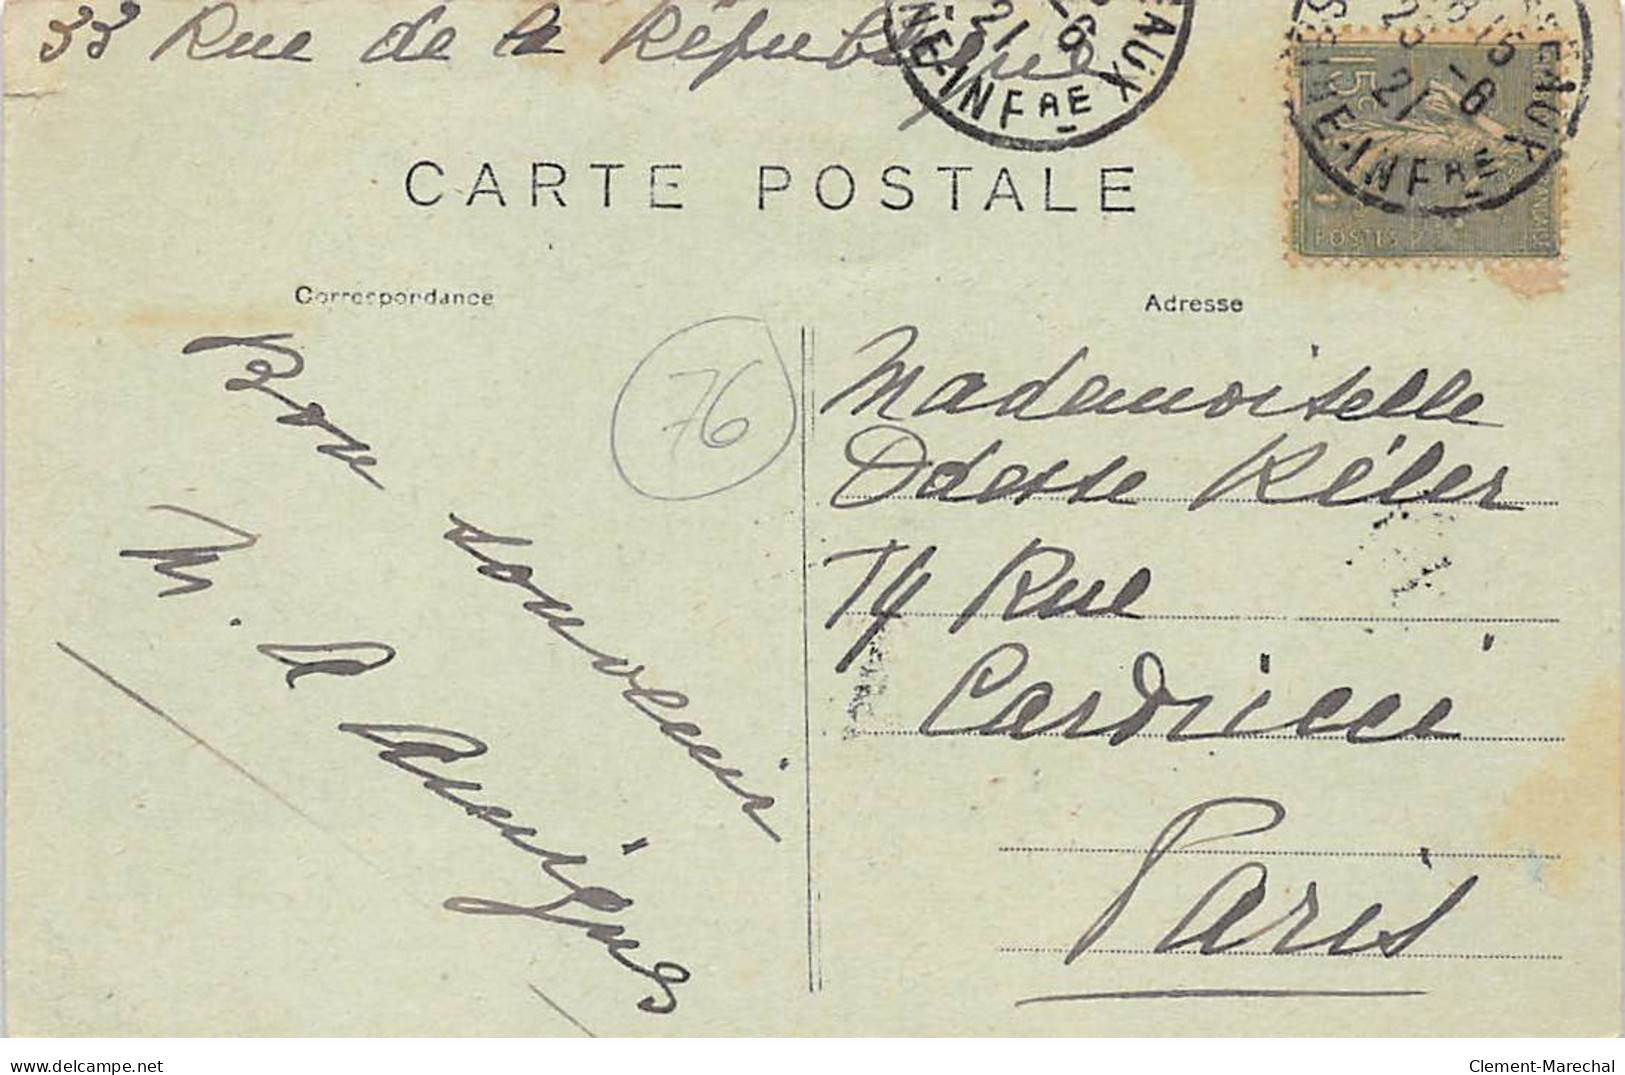 33 Rue de la République
EAUX
26
21
NE-INFRE
EAUX
15
-6
21
SEINE-INFRE
15c
POSTES
CARTE POSTALE
Correspondance
Adresse
Bon souvenir
M.
76
Mademoiselle
Odette Kéler
74 Rue
Cardinet
Paris
delcampe.net
Clement-Marechal